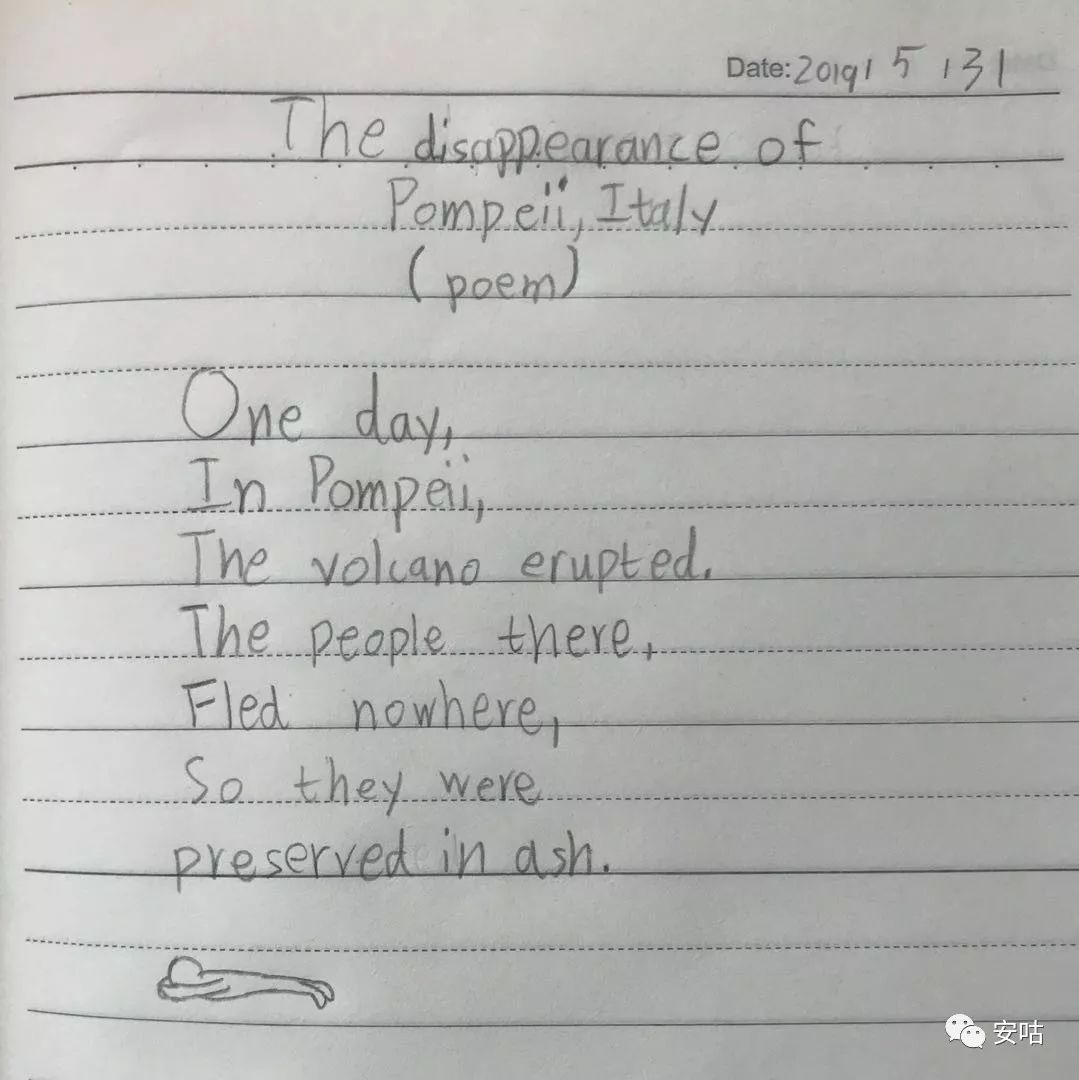 Date: 2019 / 5 / 31
The disappearance of
Pompeii, Italy
(poem)
One day,
In Pompeii,
The volcano erupted.
The people there,
Fled nowhere,
So they were
preserved in ash.
安咕